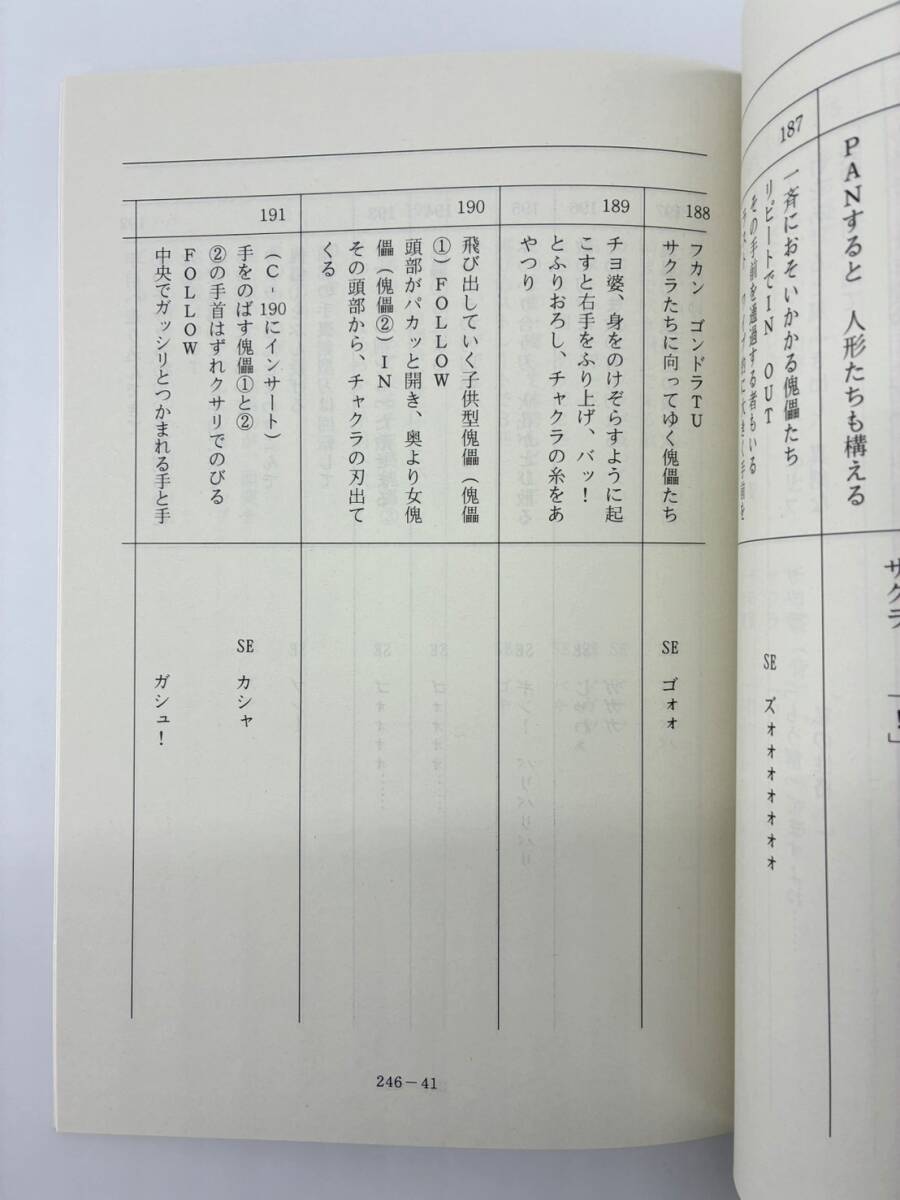 PANすると 人形たちも構える
サクラ「！」
187
一斉におそいかかる傀儡たち
リピートでIN OUT
その手前を通過する者もいる
SE ズォォォォォォォ
188
フカン ゴンドラTU
サクラたちに向ってゆく傀儡たち
SE ゴォォ
189
チヨ婆、身をのけぞらすように起
こすと右手をふり上げ、バッ！
とふりおろし、チャクラの糸をあ
やつり
190
飛び出していく子供型傀儡（傀儡
①）FOLLOW
頭部がパカッと開き、奥より女傀
儡（傀儡②）IN
その頭部から、チャクラの刃出て
くる
191
（C-190にインサート）
手をのばす傀儡①と②
②の手首はずれクサリでのびる
FOLLOW
中央でガッシリとつかまれる手と手
SE カシャ
ガシュ！
246-41